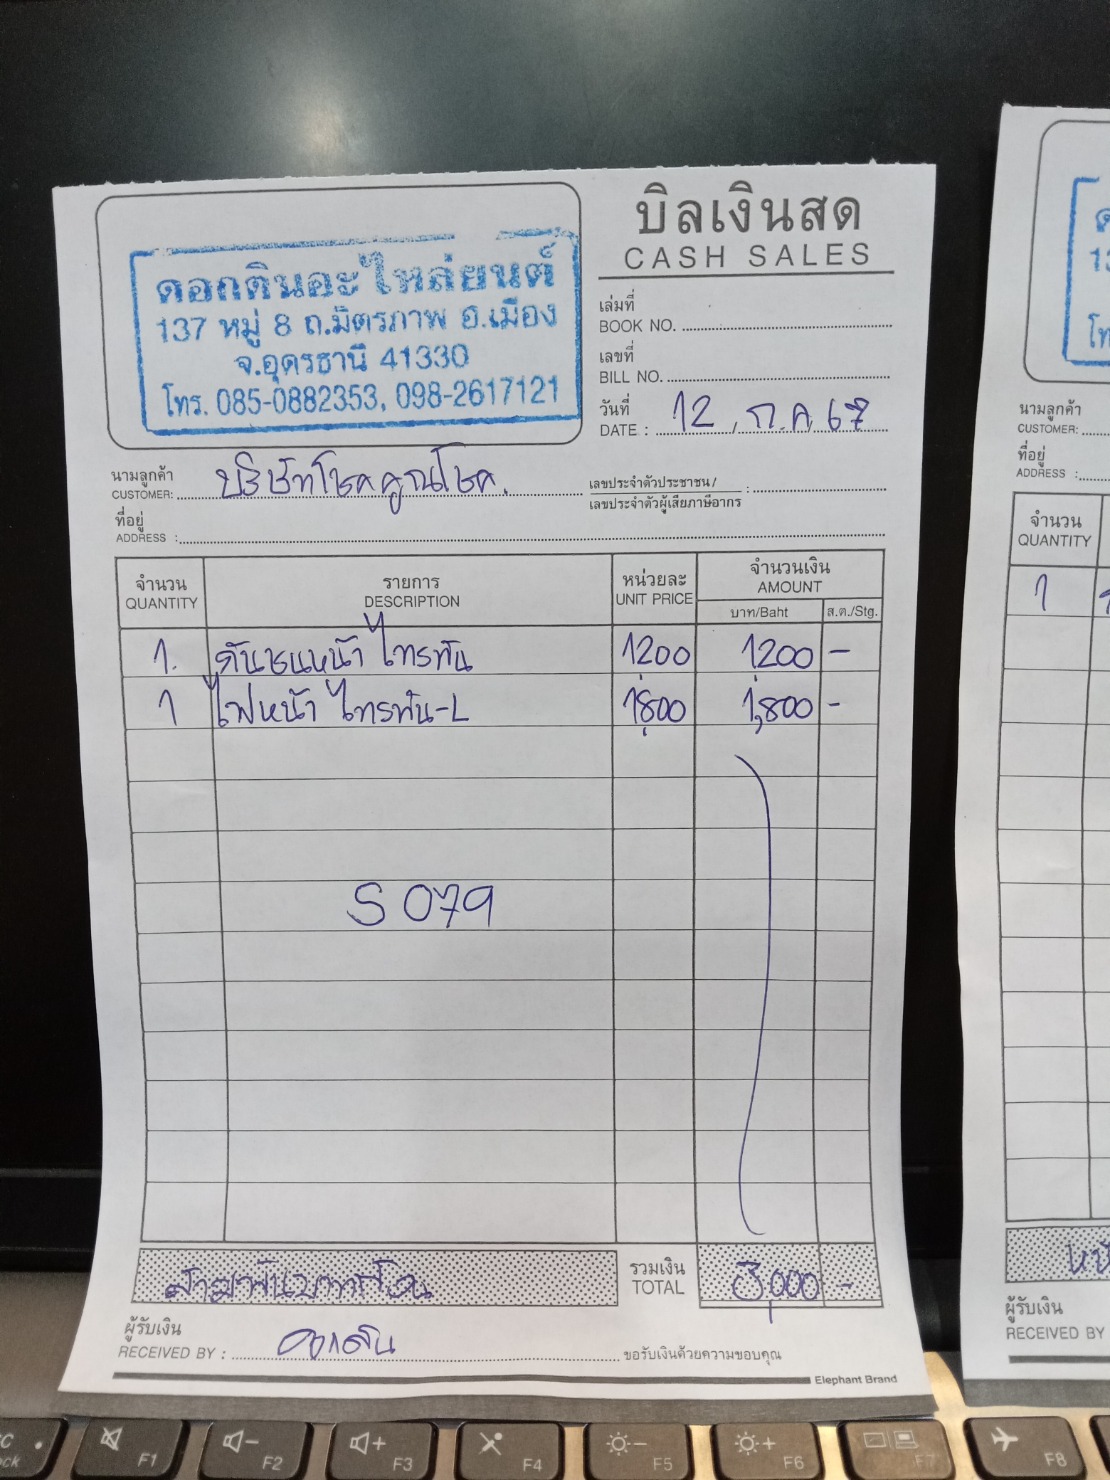 บิลเงินสด
CASH SALES
ดอกดินอะไหล่ยนต์
137 หมู่ 8 ถ.มิตรภาพ อ.เมือง
จ.อุดรธานี 41330
โทร. 085-0882353, 098-2617121
เล่มที่
BOOK NO.
เลขที่
BILL NO.
วันที่
DATE : 12 / ก.ค. / 67
นามลูกค้า
CUSTOMER: บริษัทโชคคูณโชค.
เลขประจำตัวประชาชน /
เลขประจำตัวผู้เสียภาษีอากร :
ที่อยู่
ADDRESS :
จำนวน รายการ หน่วยละ จำนวนเงิน
QUANTITY DESCRIPTION UNIT PRICE AMOUNT
บาท/Baht ส.ต./Stg.
1. กันชนหน้า ไททรัน 1200 1200 -
1 ไฟหน้า ไททรัน-L 1,800 1,800 -
S 079
สามพันบาทถ้วน
รวมเงิน
TOTAL 3,000 -
ผู้รับเงิน
RECEIVED BY : ดอกดิน ขอรับเงินด้วยความขอบคุณ
Elephant Brand
นามลูกค้า
CUSTOMER:
ที่อยู่
ADDRESS :
จำนวน
QUANTITY
1
ผู้รับเงิน
RECEIVED BY
F1 F2 F3 F4 F5 F6 F7 F8